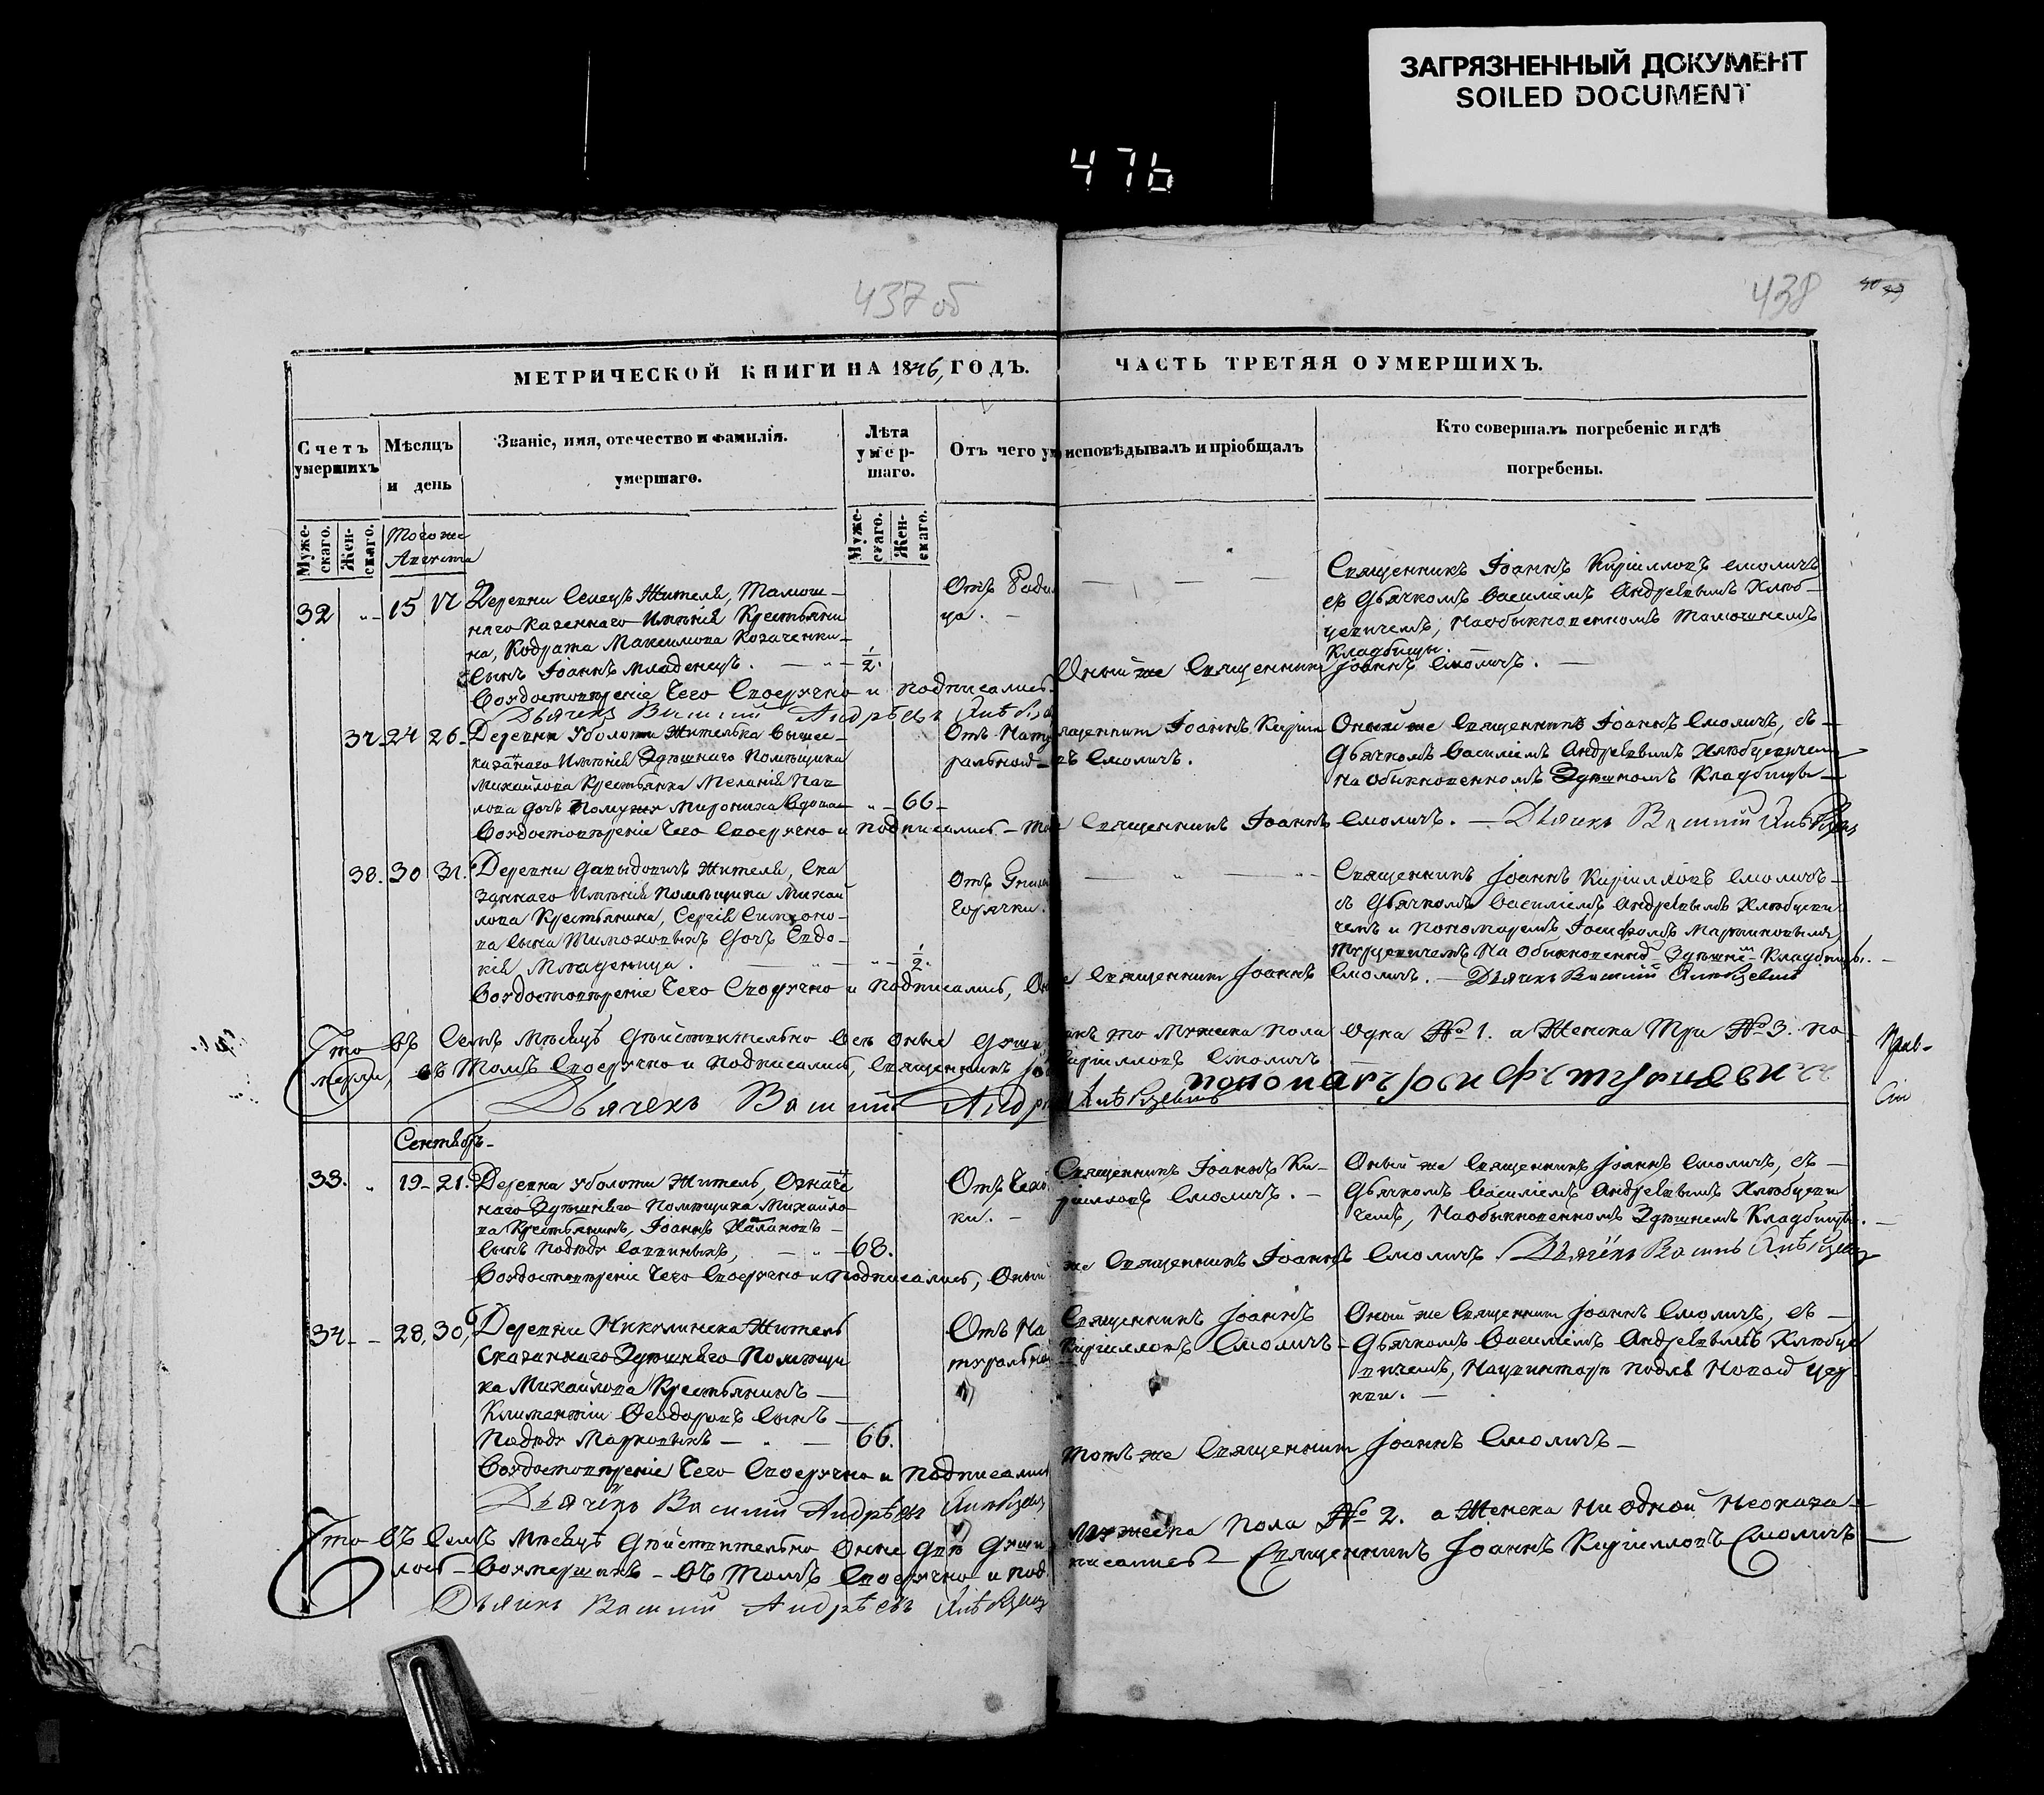 ЗАГРЯЗНЕННЫЙ ДОКУМЕНТ
SOILED DOCUMENT
476
437 об
438
МЕТРИЧЕСКОЙ КНИГИ НА 1846, ГОДЪ.
ЧАСТЬ ТРЕТЯЯ О УМЕРШИХЪ.
Счетъ умершихъ
Мѣсяцъ и день
Званіе, имя, отечество и фамилія.
умершаго.
Лѣта умер-шаго.
Отъ чего ум
исповѣдывалъ и пріобщалъ
Кто совершалъ погребеніе и гдѣ
погребены.
Муже-скаго.
Жен-скаго.
Того же
Августа
Муже-скаго.
Жен-скаго.
32 „ 15 17 Деревни Селецъ Жителя, Тамош-
няго Казеннаго Имѣнія Крестьяни
на, Кодрата Максимова Козаченки-
Сынъ Іоаннъ младенецъ. — „ — 1/2.
Отъ Роди
ца.
Священникъ Іоаннъ Кирилловъ Смоличъ
съ Дьячкомъ Василіемъ Андреевымъ Хлюб-
цевичемъ, На обыкновенномъ Тамошнемъ
Кладбищѣ.
Во удостовѣреніе Чего Своеручно и подписались
Оный же Священникъ Іоаннъ Смоличъ.
Дьячекъ Василій Андрѣевъ
37. 24 26 Деревни Уболоти Жителька выше-
казаннаго Имѣнія Здѣшняго Помѣщика
Михайлова Крестьянка Меланія Пав-
лова дочь Помужу Мирониха Вдова — „ — 66
Отъ Нату
ральной
Священникъ Іоаннъ Кирил
въ Смоличъ.
Оный же Священникъ Іоаннъ Смоличъ, съ
Дьячкомъ Василіемъ Андреевымъ Хлюбцевичемъ
на обыкновенномъ Здѣшномъ Кладбищѣ
Во удостовѣреніе Чего Своеручно и подписались — тотъ
Священникъ Іоаннъ Смоличъ. — Дьячекъ Василій
38. 30 31. Деревни Давыдовичъ Жителя, Ска
заннаго Имѣнія Помѣщика Михай
лова Крестьянина, Сергія Симоно-
ва сына Тимоховыхъ Дочь Евдо-
кія Младеница. — „ — 1/2.
Отъ
Горячки.
Священникъ Іоаннъ Кирилловъ Смоличъ
съ Дьячкомъ Василіемъ Андреевымъ Хлюбцеви
чемъ и Пономаремъ Іосифомъ Мартиновымъ
На Обыкновенно Здѣшне Кладбищѣ.
Во удостовѣреніе Чего Своручно и Подписались, Оны
Священникъ Іоаннъ Смоличъ. — Дьячекъ Василій
Что въ Семъ Мѣсяцѣ Дѣйствительно Всѣ оные
то Мужеска пола одна № 1. а Женска Три № 3. по-
мерли, въ томъ Своеручно и Подписались, Священникъ
Кирилловъ Смоличъ
Дьячекъ Василій
Сентябрь
33. „ 19 21. Деревни Уболоти Житель, Означе
ннаго Здѣшняго Помѣщика Михайло
ва Крестьянинъ, Іоаннъ
сынъ Подюдя Саввиныхъ, — „ — 68.
Священникъ Іоаннъ Ки-
рилловъ Смоличъ.
Оный же Священникъ Іоаннъ Смоличъ, съ
Дьячкомъ Василіемъ Андреевымъ Хлюбцеви
чемъ, На обыкновенномъ Здѣшнемъ Кладбищѣ.
Во удостовѣреніе Чего Своеручно и Подписались, Оный
же Священникъ Іоаннъ Смоличъ Дьячекъ Василій
34 — 28, 30, Деревни Микулинска Житель
Сказаннаго Здѣшняго Помѣщи
ка Михайлова Крестьянинъ
Климентій Феодоровъ Сынъ
Подюдя Марковыхъ — „ — 66.
Отъ На
туральной
Священникъ Іоаннъ
Кирилловъ Смоличъ
Оный же Священникъ Іоаннъ Смоличъ, съ
Дьячкомъ Василіемъ Андреевымъ Хлюбце
вичемъ, На цвинтарѣ подлѣ Новой цер
кви.
Во удостовѣреніе Чего Своеручно и Подписались
тотъ же Священникъ Іоаннъ Смоличъ
Дьячекъ Василій Андрѣевъ
Что въ Семъ Мѣсяцѣ Дѣйствительно Оные двѣ Души
Мужеска Пола № 2. а Женска Ни одной Неоказа-
лось въ томъ Своеручно и под
писались Священникъ Іоаннъ Кирилловъ Смоличъ
Дьячекъ Василій Андрѣевъ